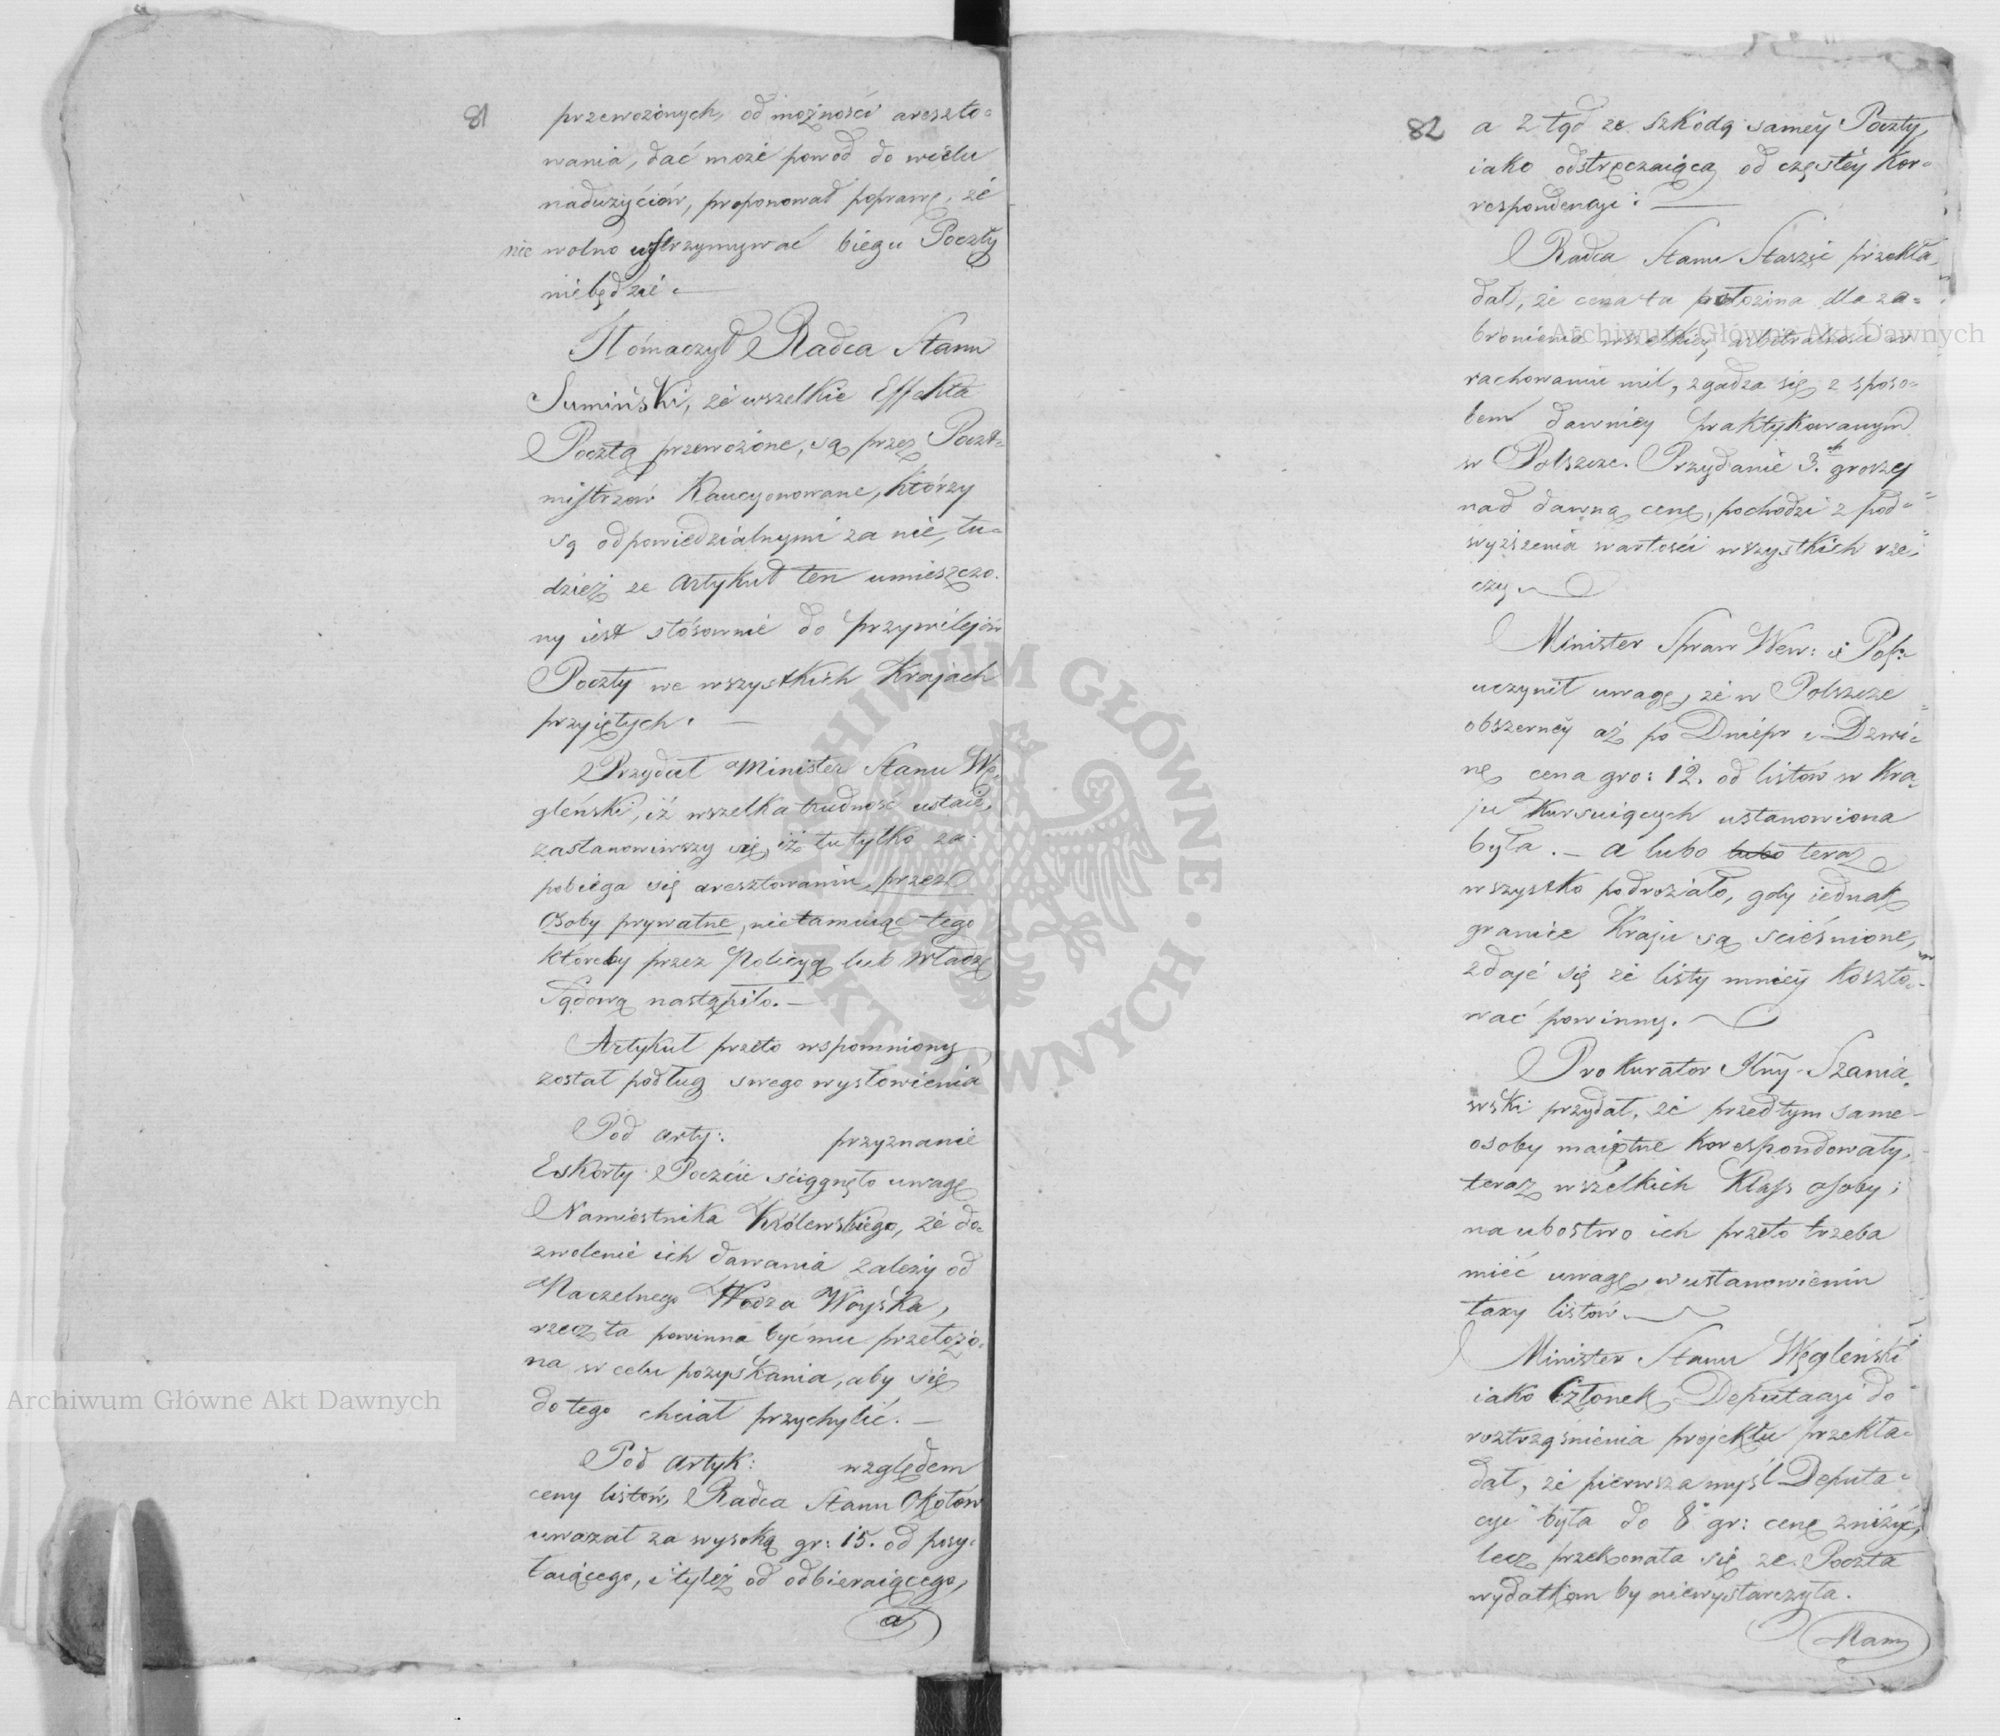 81
przewożonych, od możności areszto=
wania, dać może powód do wielu
nadużyciów, proponował poprawę, że
nie wolno wstrzymywać biegu Poczty
niebędzie.
Tłómaczył Radca Stanu
Sumiński, że wszelkie Effekta
Pocztą przewożone, są przez Poczt=
mistrzów Kaucyonowane, którzy
są odpowiedzialnymi za nie, tu=
dzież ze Artykuł ten umieszczo=
ny iest stósownie do przywilejów
Poczty we wszystkich Krajach
przyiętych.
Przydał Minister Stanu Wę=
gleński, iż wszelka trudność ustaie,
zastanowiwszy się, iż tu tylko za=
pobiega się aresztowaniu przez
Osoby prywatne, nietamuiąc tego
któreby przez Policyą lub Władzę
Sądową nastąpiło.
Artykuł przeto wspomniony
został podług swego wysłowienia
Pod arty: przyznanie
Eskorty Poczcie sciągnęło uwagę
Namiestnika Królewskiego, że do=
zwolenie ich dawania zależy od
Naczelnego Wodza Woyska,
rzecz ta powinna być mu przełożo=
na w celu pozyskania, aby się
do tego chciał przychylić.
Pod artyk: względem
ceny listów, Radca Stanu Okołów
uważał za wysoką gr: 15. od posy=
łaiącego, i tyleż od odbieraiącego,
a
82
a z tąd ze szkodą saméy Poczty,
iako odstręczaiącą od częstéy Kor=
respondencyi:
Radca Stanu Staszic przekła=
dał, że cena ta położona dla za=
bronienia wszelkiéy arbitralności w
rachowaniu mil, zgadza się z sposo=
bem dawniéy praktykowanym
w Polszcze. Przydanie 3.ch groszy
nad dawną cenę, pochodzi z pod=
wyższenia wartości wszystkich rze=
czy.
Minister Spraw Wew: i Pol:
uczynił uwagę, że w Polszcze
obszernéy aż po Dniepr i Dzwi=
nę cena gro: 12. od listów w Kra=
ju Kursuiących ustanowiona
była. – a lubo lubo teraz
wszystko podrożało, gdy iednak
granice Kraju są scieśnione,
zdaje się że listy mniéy koszto=
wać powinny.
Prokurator Jlny Szania=
wski przydał, że przedtym same
osoby maiętne korrespondowały,
teraz wszelkich Klass osoby;
na ubóstwo ich przeto trzeba
mieć uwagę, w ustanowieniu
taxy listów.
Minister Stanu Węgleński
iako Członek Deputacyi do
roztrząśnienia projektu przekła=
dał, że pierwsza myśl Deputa=
cyi była do 8 gr: cenę zniżyć,
lecz przekonała się ze Poczta
wydatkom by niewystarczyła.
Nam
Archiwum Główne Akt Dawnych
Archiwum Główne Akt Dawnych
ARCHIWUM GŁÓWNE • AKT DAWNYCH •